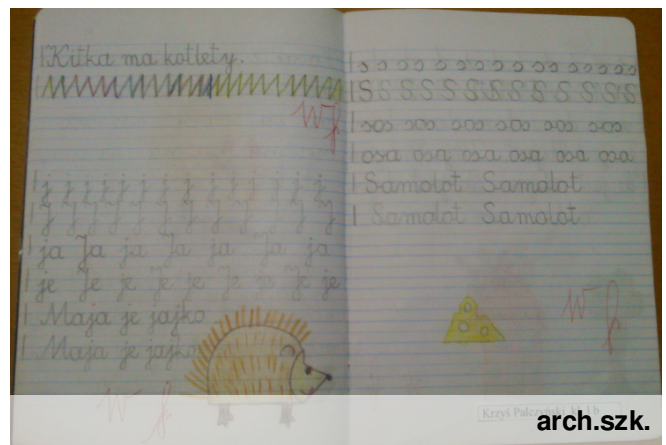 Kitka ma kotlety.
W
j j j j j j j j j j j j j
J J J J J J J J J J J
ja Ja ja Ja ja Ja ja
je Je je Je je Je je Je je
Maja je jajko
Maja je jajko
W
s s s s s s s s s s s s s
S S S S S S S S S S S S
sos sos sos sos sos sos
osa osa osa osa osa osa
Samolot Samolot
Samolot Samolot
W
Krzyś Pałczyński
arch.szk.